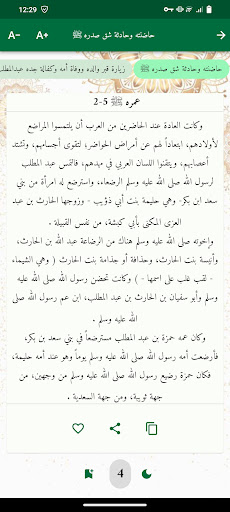 12:29
A- A+ حاضنته وحادثة شق صدره ﷺ
حاضنته وحادثة شق صدره ﷺ زيارة قبر والده ووفاة أمه وكفالة جده عبدالمطلب
عمره ﷺ 5-2
وكانت العادة عند الحاضرين من العرب أن يلتمسوا المراضع
لأولادهم، ابتعاداً لهم عن أمراض الحواضر؛ لتقوى أجسامهم، وتشتد
أعصابهم، ويتقنوا اللسان العربي في مهدهم، فالتمس عبد المطلب
لرسول الله صلى الله عليه وسلم الرضعاء، واسترضع له امرأة من بني
سعد ابن بكر- وهي حليمة بنت أبي ذؤيب - وزوجها الحارث بن عبد
العزى المكنى بأبي كبشة، من نفس القبيلة .
وإخوته صلى الله عليه وسلم هناك من الرضاعة عبد الله بن الحارث،
وأنيسة بنت الحارث، وحذافة أو جذامة بنت الحارث ( وهي الشيماء،
- لقب غلب على اسمها - ) وكانت تحضن رسول الله صلى الله عليه
وسلم وأبو سفيان بن الحارث بن عبد المطلب، ابن عم رسول الله صلى
الله عليه وسلم .
وكان عمه حمزة بن عبد المطلب مسترضعاً في بني سعد بن بكر،
فأرضعت أمه رسول الله صلى الله عليه وسلم يوماً وهو عند أمه حليمة،
فكان حمزة رضيع رسول الله صلى الله عليه وسلم من وجهين، من
جهة ثويبة، ومن جهة السعدية .
4